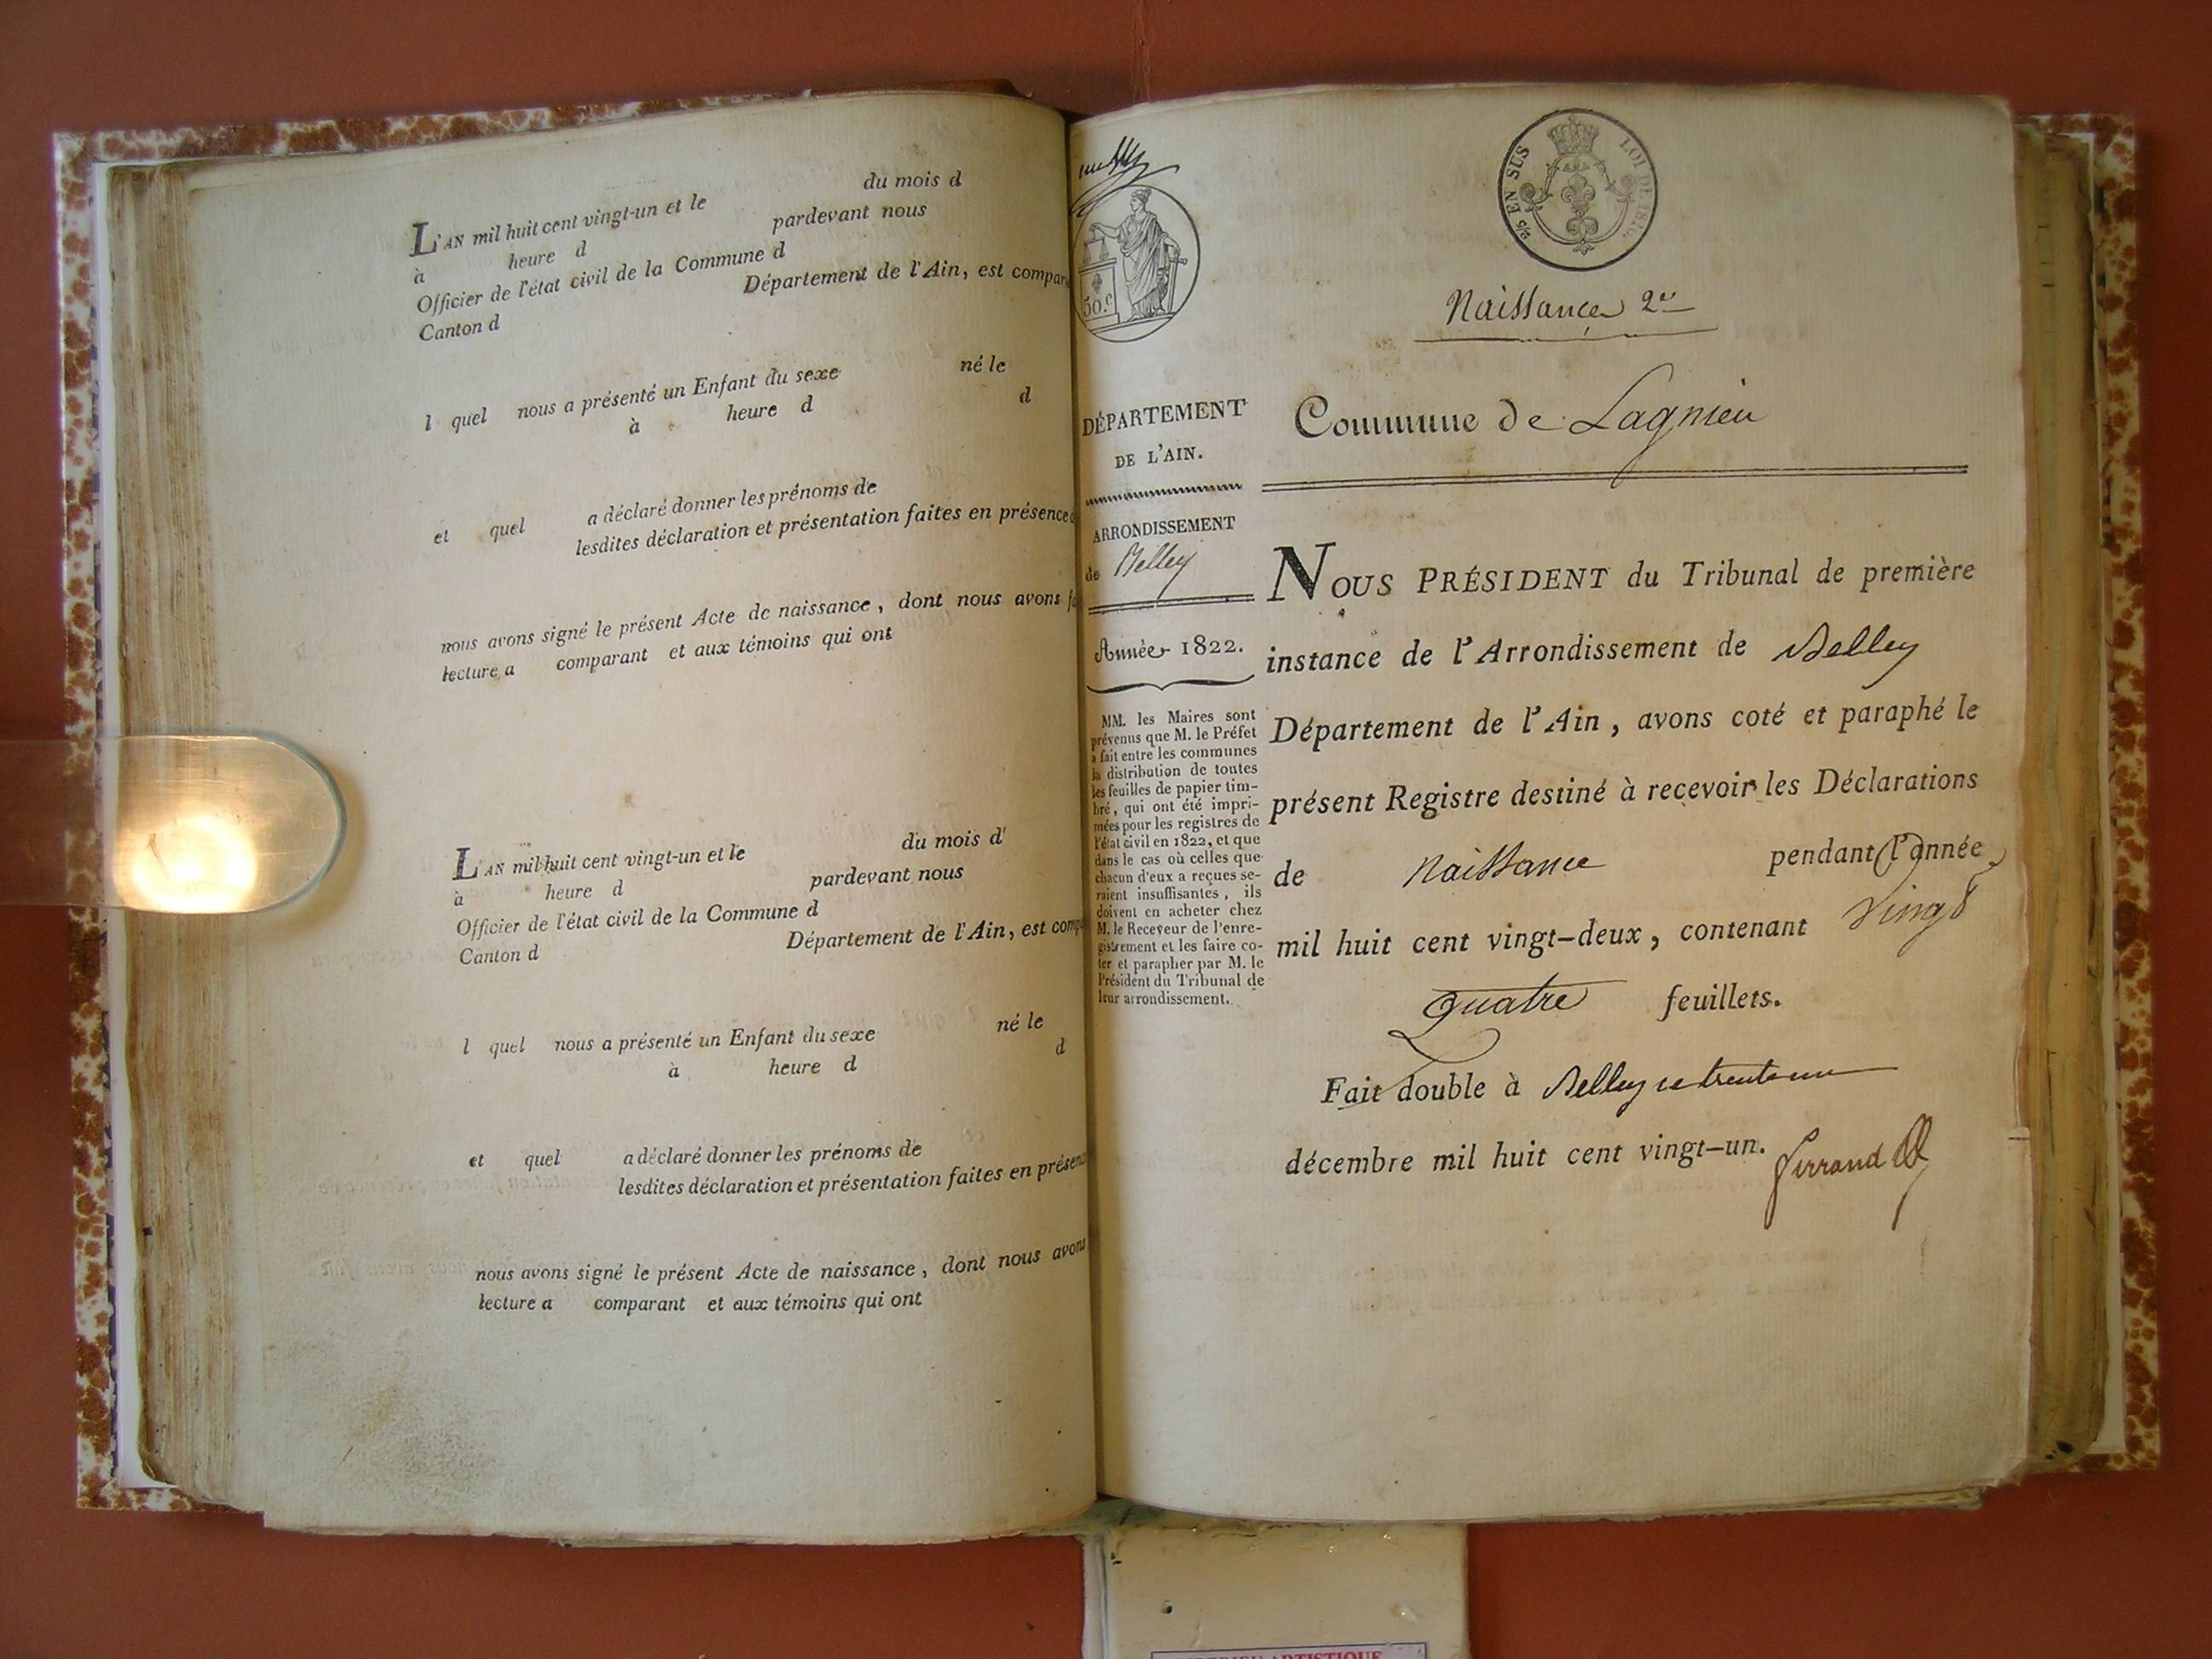 L'AN mil huit cent vingt-un et le du mois d
à heure d pardevant nous
Officier de l'état civil de la Commune d
Canton d Département de l'Ain, est compar
l quel nous a présenté un Enfant du sexe né le
à heure d d
et quel a déclaré donner les prénoms de
lesdites déclaration et présentation faites en présence
nous avons signé le présent Acte de naissance, dont nous avons
lecture a comparant et aux témoins qui ont
L'AN mil huit cent vingt-un et le du mois d'
à heure d pardevant nous
Officier de l'état civil de la Commune d
Canton d Département de l'Ain, est comp
l quel nous a présenté un Enfant du sexe né le
à heure d d
et quel a déclaré donner les prénoms de
lesdites déclaration et présentation faites en présen
nous avons signé le présent Acte de naissance, dont nous avons
lecture a comparant et aux témoins qui ont
50.c
2/5 EN SUS LOI DE 1816.
Naissance 2e
DÉPARTEMENT
DE L'AIN.
Commune de Lagnieu
ARRONDISSEMENT
de Belley
Année 1822.
MM. les Maires sont
prévenus que M. le Préfet
a fait entre les communes
la distribution de toutes
les feuilles de papier tim-
bré, qui ont été impri-
mées pour les registres de
l'état civil en 1822, et que
dans le cas où celles que
chacun d'eux a reçues se-
raient insuffisantes, ils
doivent en acheter chez
M. le Receveur de l'enre-
gistrement et les faire co-
ter et parapher par M. le
Président du Tribunal de
leur arrondissement.
NOUS PRÉSIDENT du Tribunal de première
instance de l'Arrondissement de Belley
Département de l'Ain, avons coté et paraphé le
présent Registre destiné à recevoir les Déclarations
de Naissance pendant l'année
mil huit cent vingt-deux, contenant vingt
quatre feuillets.
Fait double à Belley ce trente un
décembre mil huit cent vingt-un.
ARTISTIQUE